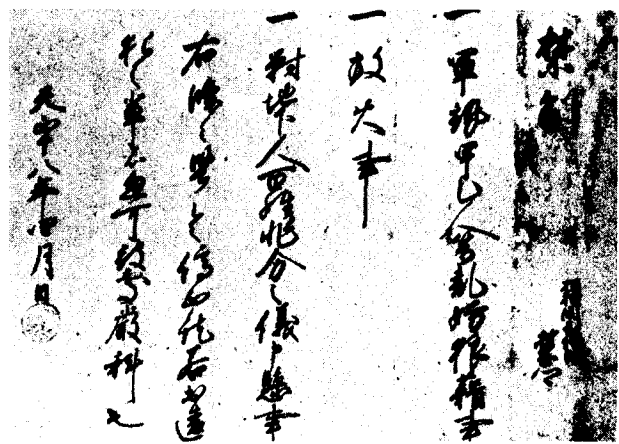 禁制
一 軍勢甲乙人等乱妨狼藉事
一 放火事
一 對地下人百姓非分之儀申懸事
右條々堅令停止訖若於違
犯之輩者忽可被處嚴科也
天正十八年四月日